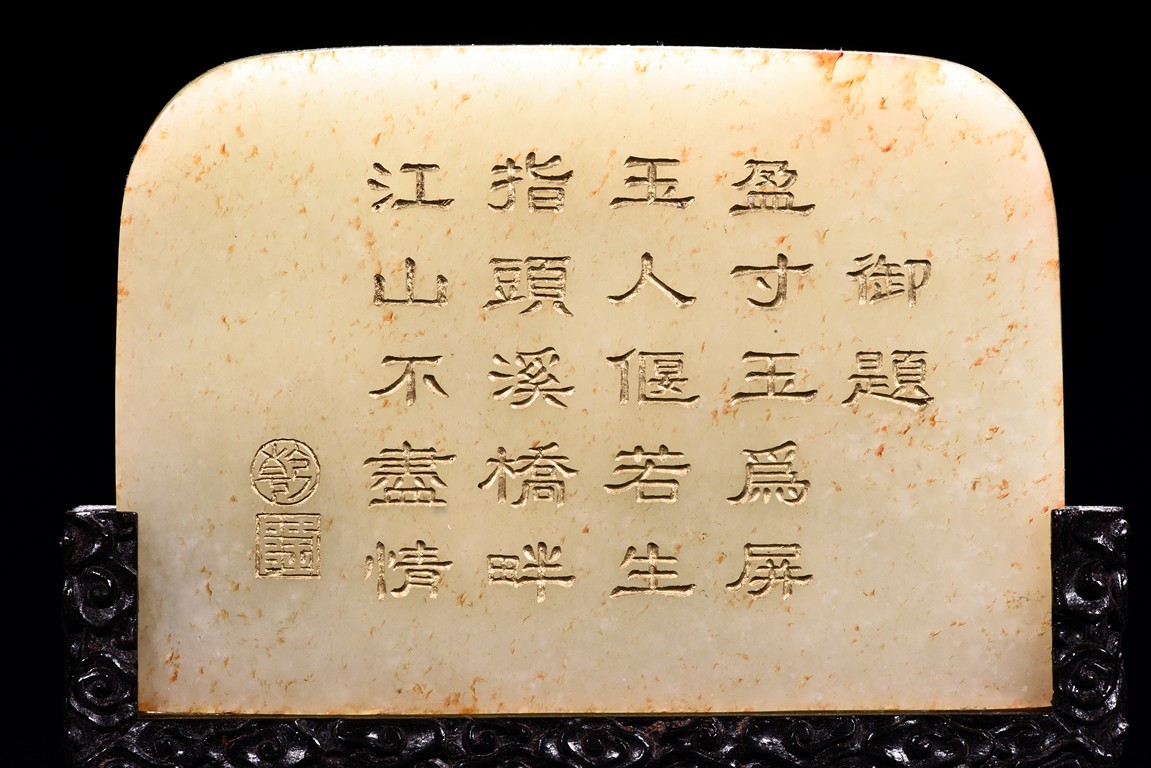 御題
盈寸玉爲屏
玉人偃若生
指頭溪橋畔
江山不盡情